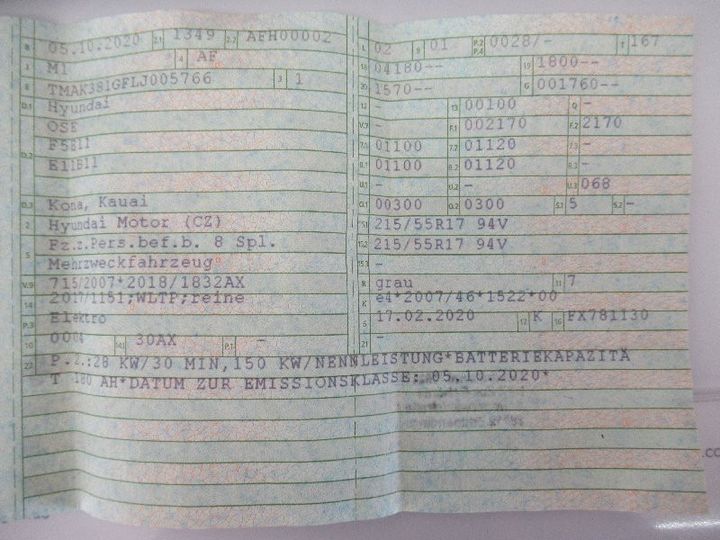 B 05.10.2020 2.1 1349 2.2 AFH00002
J M1 4 AF
E TMAK381GFLJ005766 3 1
D.1 Hyundai
OSE
D.2 F5B11
E11B11
D.3 Kona, Kauai
2 Hyundai Motor (CZ)
5 Fz.z.Pers.bef.b. 8 Spl.
Mehrzweckfahrzeug
V.9 715/2007*2018/1832AX
14 2017/1151;WLTP;reine
P.3 Elektro
10 0004 14.1 30AX P.1 -
22 P.2.:28 KW/30 MIN,150 KW/NENNLEISTUNG*BATTERIEKAPAZITÄ
T 180 AH*DATUM ZUR EMISSIONSKLASSE: 05.10.2020*
L 02 9 01 P.2 P.4 0028/- T 167
18 04180-- 19 1800--
20 1570-- G 001760--
12 - 13 00100 Q -
V.7 - F.1 002170 F.2 2170
7.1 01100 7.2 01120 7.3 -
8.1 01100 8.2 01120 8.3 -
U.1 - U.2 - U.3 068
O.1 00300 O.2 0300 S.1 5 S.2 -
15.1 215/55R17 94V
15.2 215/55R17 94V
15.3 -
R grau 11 7
K e4*2007/46*1522*00
6 17.02.2020 17 K 16 FX781130
21 -